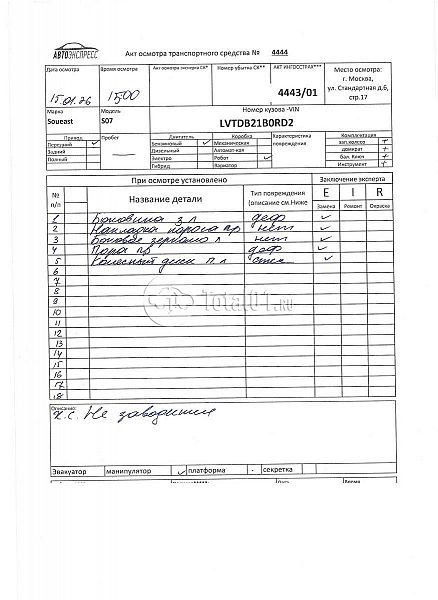 АВТОЭКСПРЕСС
Акт осмотра транспортного средства № 4444
Дата осмотра Время осмотра Акт осмотра эксперта СК* Номер убытка СК** АКТ ИНГОССТРАХ*** Место осмотра:
г. Москва,
ул. Стандартная д.6,
стр.17
15.01.26 1500 4443/01
Марка Модель Номер кузова -VIN
Soueast S07 LVTDB21B0RD2
Привод Пробег Двигатель Коробка Характеристика повреждения Комплектация
Передний ✓ Бензиновый ✓ Механическая зап.колесо +
Задний Дизельный Автомат-кая домкрат +
Полный Электро Робот ✓ бал. Ключ +
Гибрид Вариатор Инструмент +
При осмотре установлено Заключение эксперта
№ п/п Название детали Тип повреждения (описание см.Ниже E I R
Замена Ремонт Окраска
1 Боковина з л деф ✓
2 Накладка порога пр нет ✓
3 Боковое зеркало л нет ✓
4 Пора пр деф ✓
5 Колесный диск п л ✓
6
7
7
8
9
10
11
12
13
14
15
16
17
18
Total01.RU
Описание:
х.с. Не заводится
Эвакуатор манипулятор ✓ платформа - секретка
Дата Время